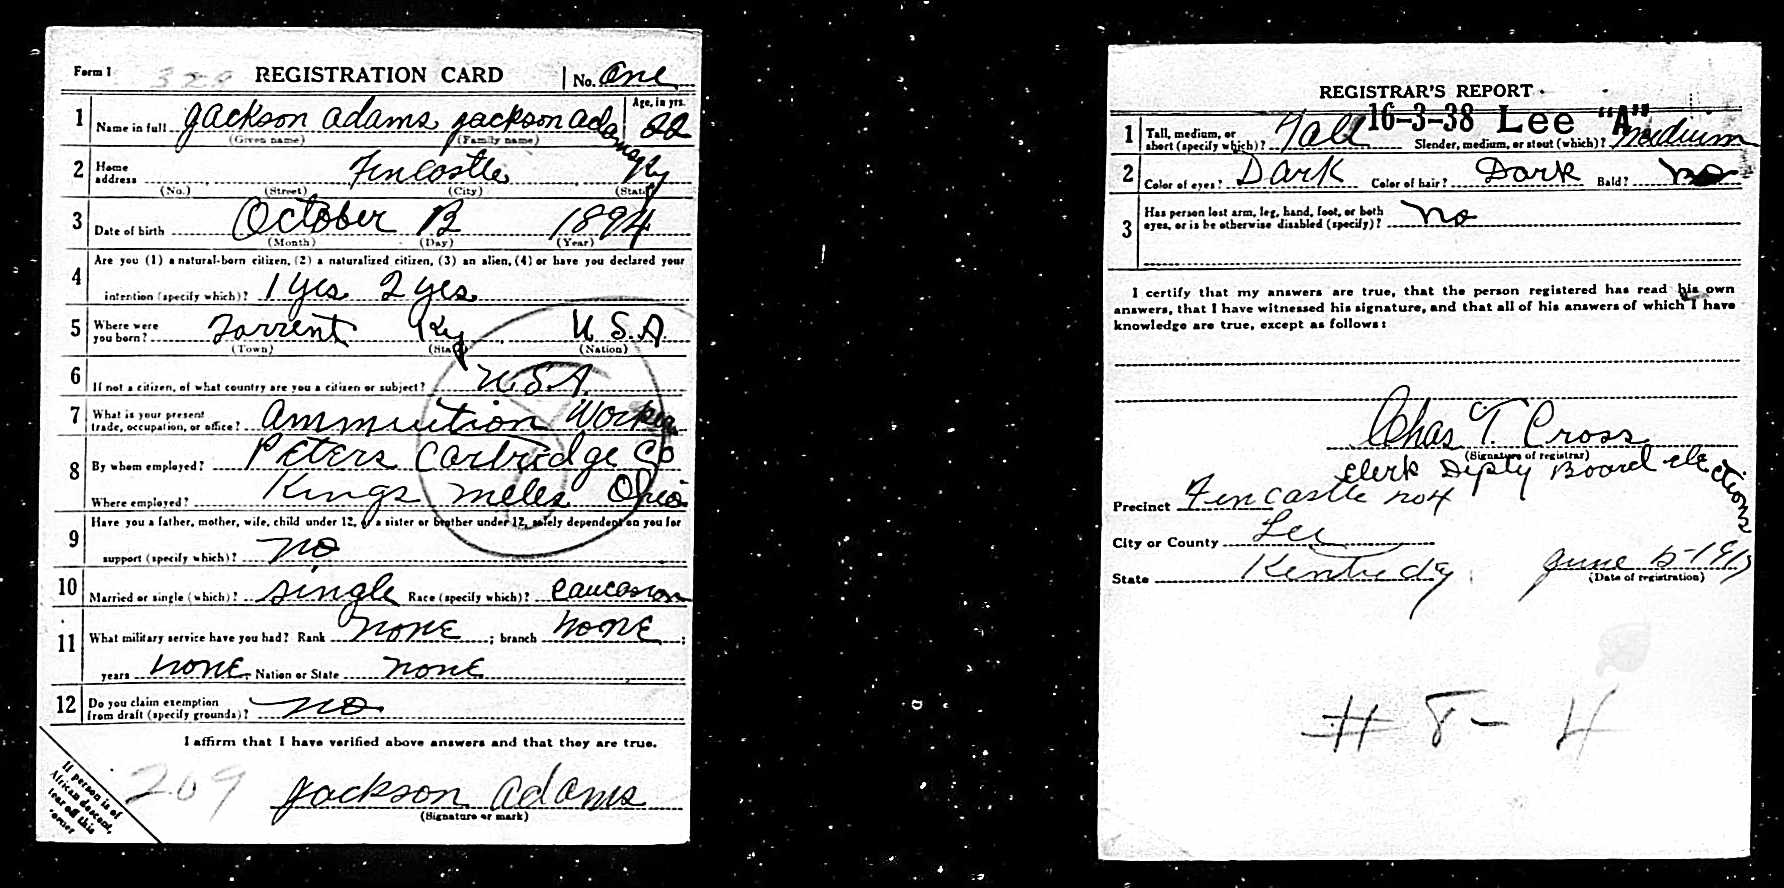 Form 1 329 REGISTRATION CARD No. One
1 Name in full Jackson Adams Jackson Adams Age, in yrs. 22
(Given name) (Family name)
2 Home address Fincastle Ky
(No.) (Street) (City) (State)
3 Date of birth October 13 1894
(Month) (Day) (Year)
4 Are you (1) a natural-born citizen, (2) a naturalized citizen, (3) an alien, (4) or have you declared your
intention (specify which)? 1 yes 2 yes
5 Where were you born? Torrent Ky U.S.A.
(Town) (State) (Nation)
6 If not a citizen, of what country are you a citizen or subject? U.S.A.
7 What is your present trade, occupation, or office? Ammunition Worker
8 By whom employed? Peters Cartridge Co
Where employed? Kings Mills Ohio
9 Have you a father, mother, wife, child under 12, or a sister or brother under 12, solely dependent on you for
support (specify which)? no
10 Married or single (which)? single Race (specify which)? caucasion
11 What military service have you had? Rank none ; branch none ;
years none Nation or State none
12 Do you claim exemption from draft (specify grounds)? no
I affirm that I have verified above answers and that they are true.
209 Jackson Adams
(Signature or mark)
If person is of
African descent,
tear off this
corner
REGISTRAR'S REPORT
16-3-38 Lee "A"
1 Tall, medium, or short (specify which)? Tall Slender, medium, or stout (which)? medium
2 Color of eyes? Dark Color of hair? Dark Bald? no
3 Has person lost arm, leg, hand, foot, or both
eyes, or is he otherwise disabled (specify)? no
I certify that my answers are true, that the person registered has read his own
answers, that I have witnessed his signature, and that all of his answers of which I have
knowledge are true, except as follows:
Chas T. Cross
(Signature of registrar)
clerk Depty Board elections
Precinct Fincastle no 4
City or County Lee
State Kentucky June 5-1917
(Date of registration)
# 8 - 4